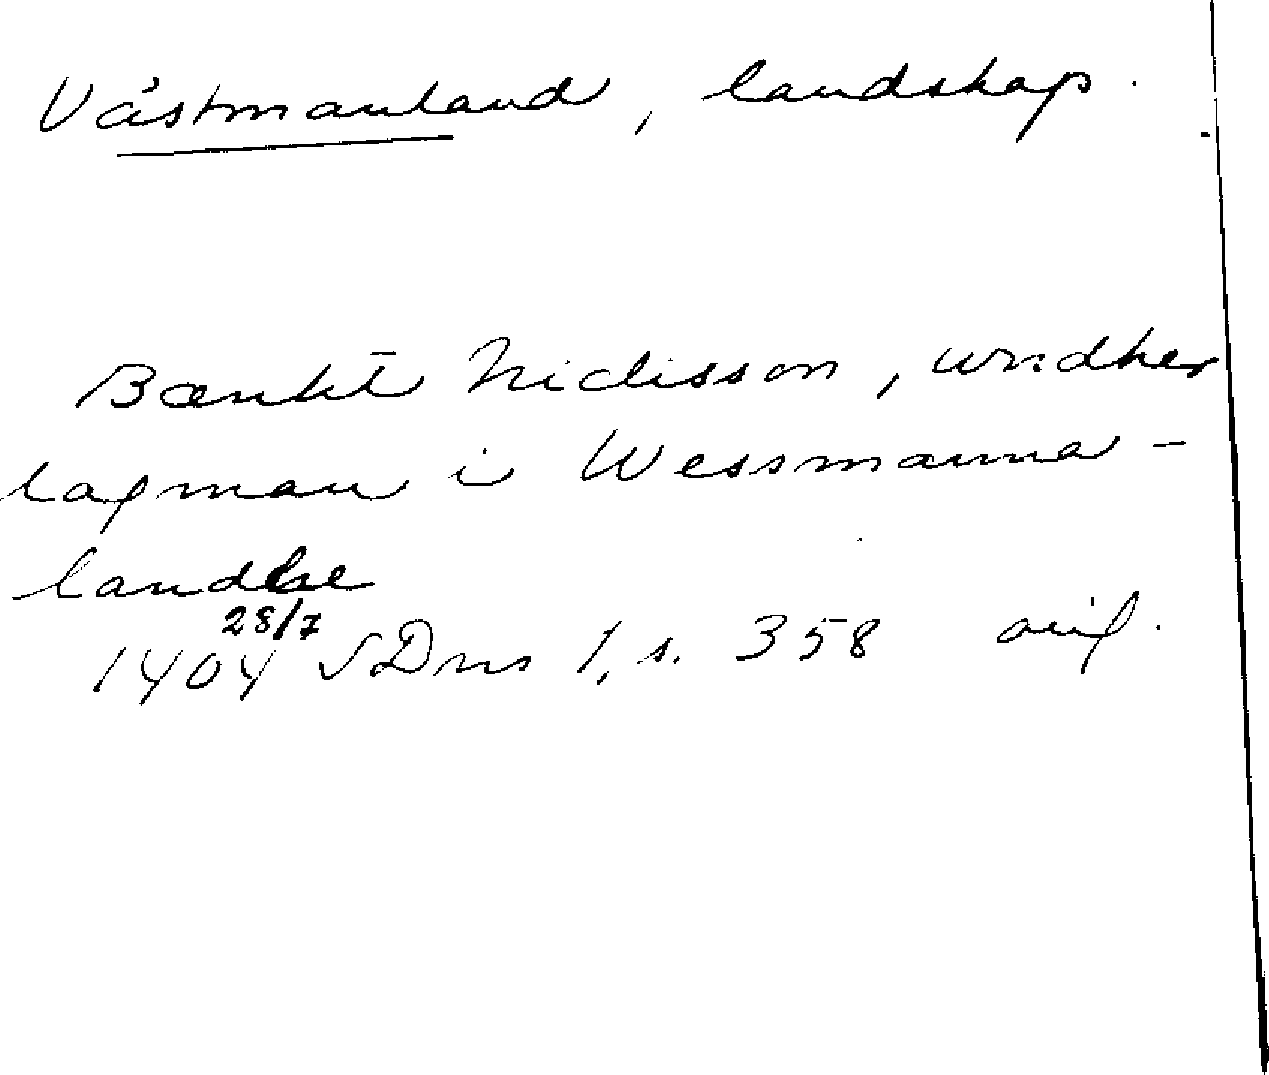 Västmanland, landskap.
Bænktt Niclisson, wndher
lagman i Wessmanna-
landhe
28/7
1404 SDns 1, s. 358 orig.